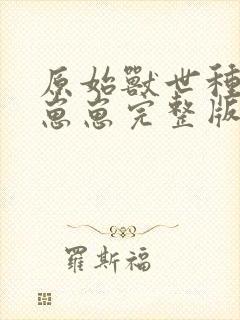 原始獸世種
崽崽完整版
羅斯福